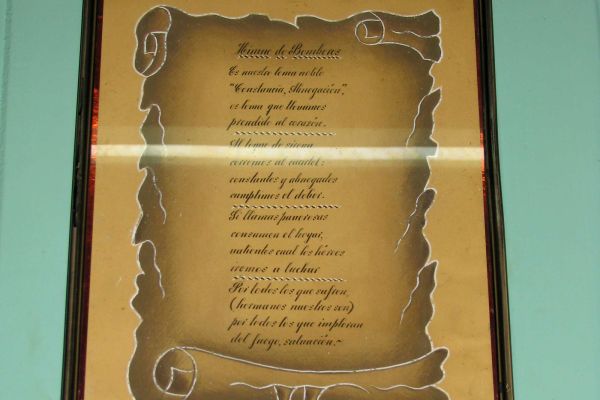 Himno de Bomberos
Es nuestro lema noble
"Constancia, Abnegación",
es lema que llevamos
prendido al corazón.
Al toque de sirena
corremos al cuartel:
constantes y abnegados
cumplimos el deber.
Si llamas pavorosas
consumen el hogar,
valientes cual los héroes
iremos a luchar
Por todos los que sufren,
(hermanos nuestros son)
por todos los que imploran
del fuego, salvación.~